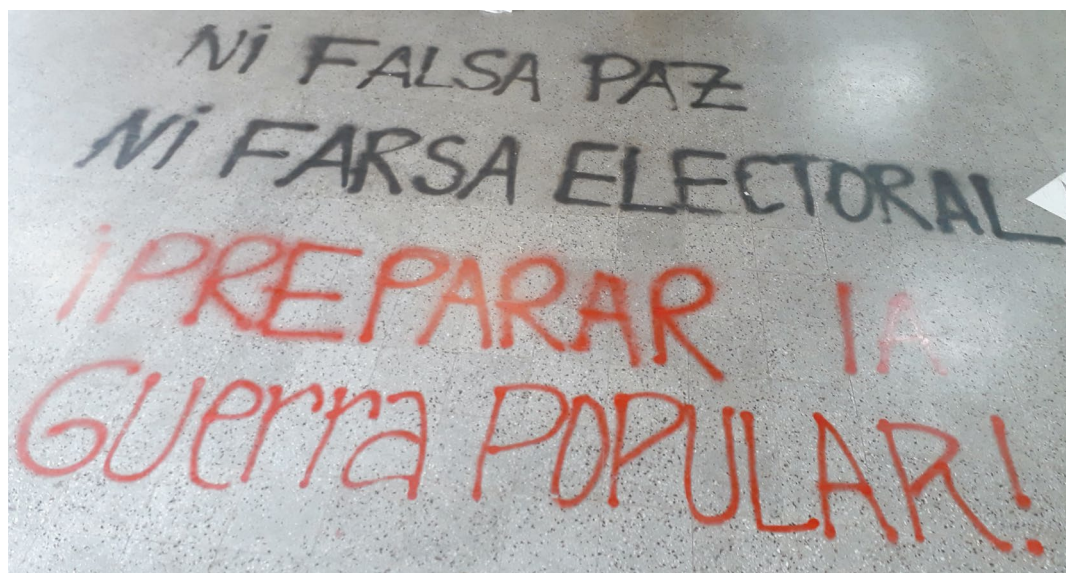 Ni FALSA PAZ
Ni FARSA ELECTORAL
¡PREPARAR lA
Guerra POPULAR!